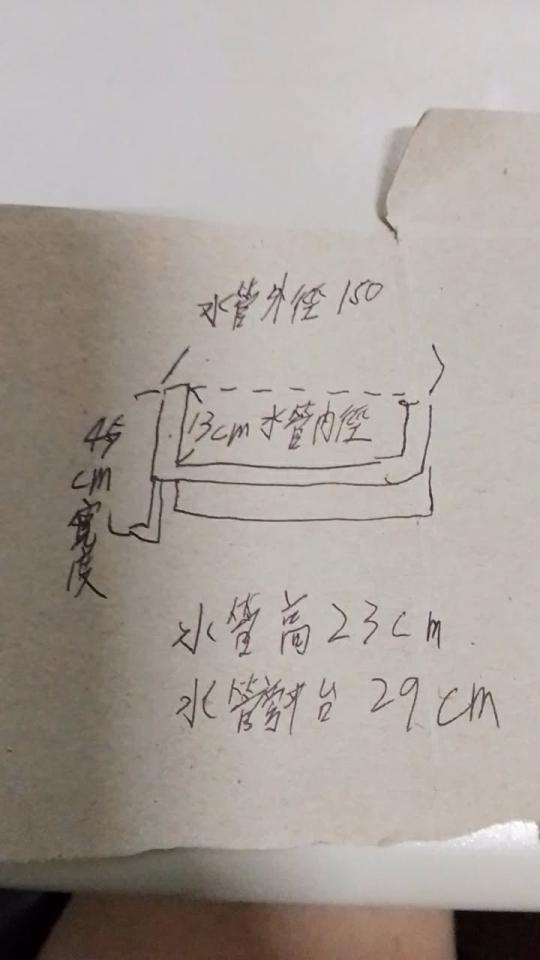 水管外徑150
13cm水管內徑
45cm寬度
水管高23cm
水管台29cm